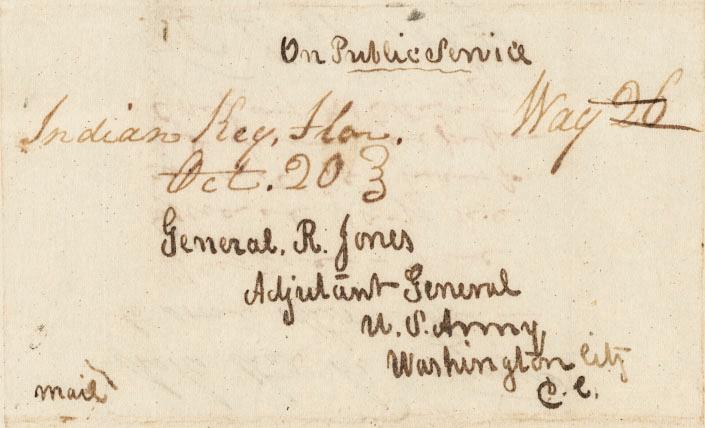 On Public Service
Indian Key, Flor. Way 26
Oct. 20 3
General, R. Jones
Adjutant General
U. S. Army,
Washington City
D. C.
mail